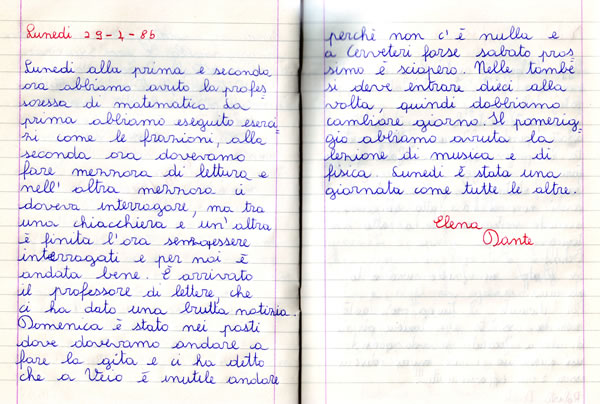 Lunedì 29-4-86
Lunedì alla prima e seconda
ora abbiamo avuto la profes-
soressa di matematica. La
prima abbiamo eseguito eserci-
zi come le frazioni, alla
seconda ora dovevamo
fare mezzora di lettura e
nell' altra mezzora ci
doveva interrogare, ma tra
una chiacchiera e un'altra
è finita l'ora senza essere
interrogati e per noi è
andata bene. È arrivato
il professore di lettere, che
ci ha dato una brutta notizia.
Domenica è stato nei posti
dove dovevamo andare a
fare la gita e ci ha detto
che a Veio è inutile andare
perchè non c'è nulla e
a Cerveteri forse sabato pros-
simo è sciopero. Nelle tombe
si deve entrare dieci alla
volta, quindi dobbiamo
cambiare giorno. Il pomerig-
gio abbiamo avuta la
lezione di musica e di
fisica. Lunedì è stata una
giornata come tutte le altre.
Elena
Dante